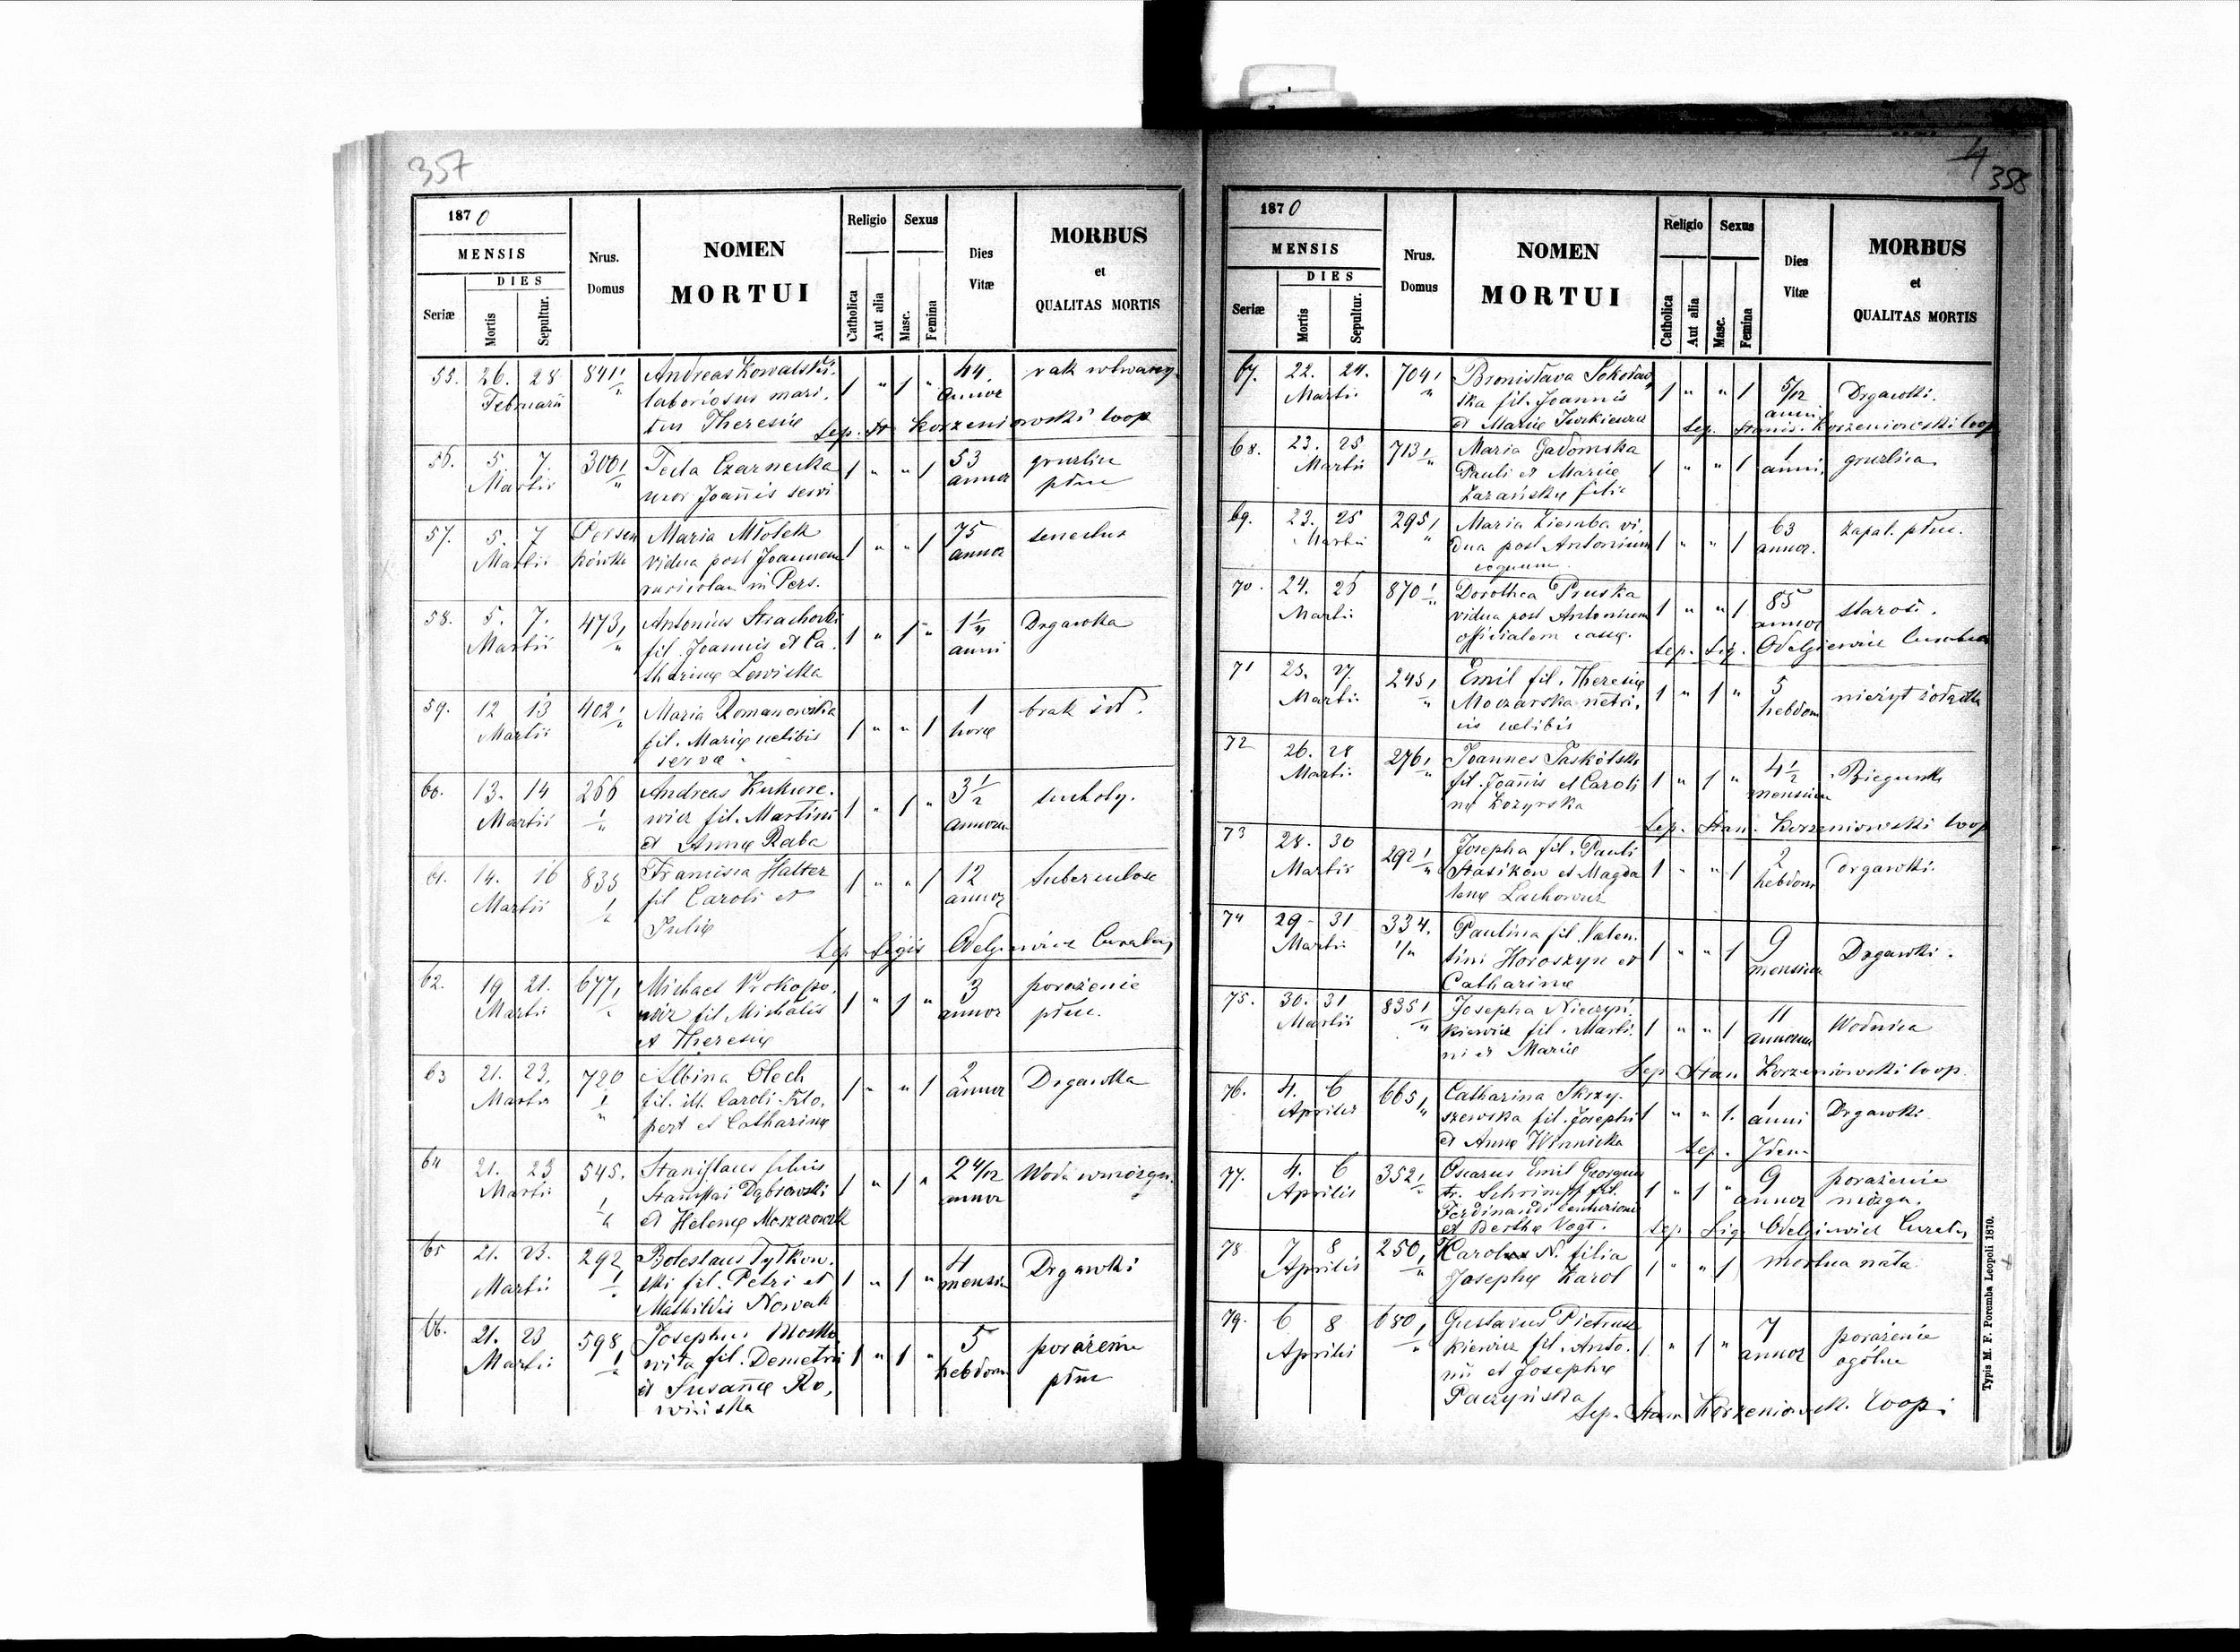 357
1870
MENSIS
DIES
Seriæ
Mortis
Sepultur.
Nrus. Domus
NOMEN
MORTUI
Religio
Catholica
Aut alia
Sexus
Masc.
Femina
Dies
Vitæ
MORBUS
et
QUALITAS MORTIS
55. 26. 28 841 1/" Andreas Kowalski 1 " 1 " 44. rak
Februarii laboriosus mari. annor
tus Theresiæ
Sep. St Korzeniowski Coop
56. 5. 7. 300 1/" Tecla Czarnecka 1 " " 1 53 gruzlica
Martii uxor Joañis servi annor płuc
57. 5. 7 Persen Maria Młotek 1 " " 1 75 senectus
Martii kówka vidua post Joannem annor
ruricolam in Pers.
58. 5. 7. 473 1/" Antonius Strachocki 1 " 1 " Drgawka
Martii fil. Joannis et Ca. anni
tharinæ Lewicka
59. 12 13 402 1/" Maria Romanowska 1 " " 1 1 brak sił.
Martii fil. Mariæ cœlibis horæ
servæ
60. 13. 14 266 1/" Andreas Kukure. 1 " 1 " 3 1/2 suchoty.
Martii wicz fil. Martini annorum
et Annæ Raba
61. 14. 16 835 1/" Francisca Halter 1 " " 1 12 tuberculose
Martii fil Caroli et annor
Juliæ
Sep Sigis Odelgiewicz Curatus
62. 19 21. 677 1/" Michael Prokopo. 1 " 1 " 3 porażenie
Martii wicz fil Michalis annor płuc.
et Theresiæ
63 21. 23. 720 1/" Albina Olech 1 " " 1 2 Drgawka
Martii fil. ill. Caroli Klo. annor
pert et Catharinæ
64 21. 23 545. 1/" Stanislaus filius 1 " 1 " 2 4/12 Woda w mózgu.
Martii Stanislai Dąbrowski annor
et Helenæ Moszerowsk
65 21. 23. 292 1/" Boleslaus Tytkow. 1 " 1 " 4 Drgawki
Martii ski fil. Petri et mensiu
Mathildis Nowak
66. 21. 23 598 1/" Josephus Mosko. 1 " 1 " 5 porażenie
Martii wita fil. Demetrii hebdom płuc
et Susañæ Ro.
winska
4
358
1870
MENSIS
DIES
Seriæ
Mortis
Sepultur.
Nrus.
Domus
NOMEN
MORTUI
Religio
Catholica
Aut alia
Sexus
Masc.
Femina
Dies
Vitæ
MORBUS
et
QUALITAS MORTIS
67. 22. 24. 704 1/" Bronisława Sokołow 1 " " 1 5/12 Drgawki.
Martii ska fil. Joannis anni
et Mariæ
Sep. Stanis. Korzeniowski Coop
68. 23. 25 713 1/" Maria Gadomska 1 " " 1 1 gruzlica
Martii Pauli et Mariæ anni.
Zarańskæ filia
69. 23. 25 295 1/" Maria Ziemba vi. 1 " " 1 63 zapal. płuc.
Martii dua post Antonium annor.
70. 24. 26 870 1/" Dorothea Pruska 1 " " 1 85 starość.
Martii vidua post Antonium annor
officialem cassæ.
Sep. Sig. Odelgiewicz Curatus
71 25. 27. 245 1/" Emil fil. Theresiæ 1 " 1 " 5 nieżyt żołądka
Martii Moczarska hebdom
cœlibis
72 26. 28 276 1/" Joannes Taskólski 1 " 1 " 4 1/2 Biegunk
Martii fil. Joañis et Caroli mensium
næ Kozyrska
Sep. Stan. Korzeniowski Coop
73 28. 30 292 1/" Josepha fil. Pauli 1 " " 1 2 drgawki.
Martii Stasikow et Magda hebdom
lenæ Lachowicz
74 29. 31 334. 1/" Paulina fil. Valen. 1 " " 1 9 Drgawki.
Martii tini Horoszyn et mensium
Catharinæ
75. 30. 31 835 1/" Josepha Nieczyń. 1 " " 1 11 Wodnica
Martii kiewicz fil. Marti. annorum
ni et Mariæ
Sep Stan Korzeniowski Coop.
76. 4. 6 665 1/" Catharina Skrzy. 1 " " 1. 1 Drgawki
Aprilis szewska fil. Josephi anni
et Annæ Winnicka
Sep. Idem
77. 4. 6 352 1/" Oscarus Emil Georgius 1 " 1 " 9 porażenie
Aprilis tr. Schrimpf fil. annor mózgu.
Ferdinandi Centurioni
et Berthæ Vogt.
Sep Sig Odelgiewicz Curatus
78 7 8 250 1/" Karol N. filia 1 " " 1 mortua nata
Aprilis Josephæ Karol
79. 6 8 680 1/" Gustavus Pietrusz 1. " 1 " 7 porażenie
Aprilis kiewicz fil. Anto. annor ogólne
nii et Josephæ
Paczyńska
Sep. Stan Korzeniowsk. Coop.
Typis M. F. Poremba Leopoli 1870.